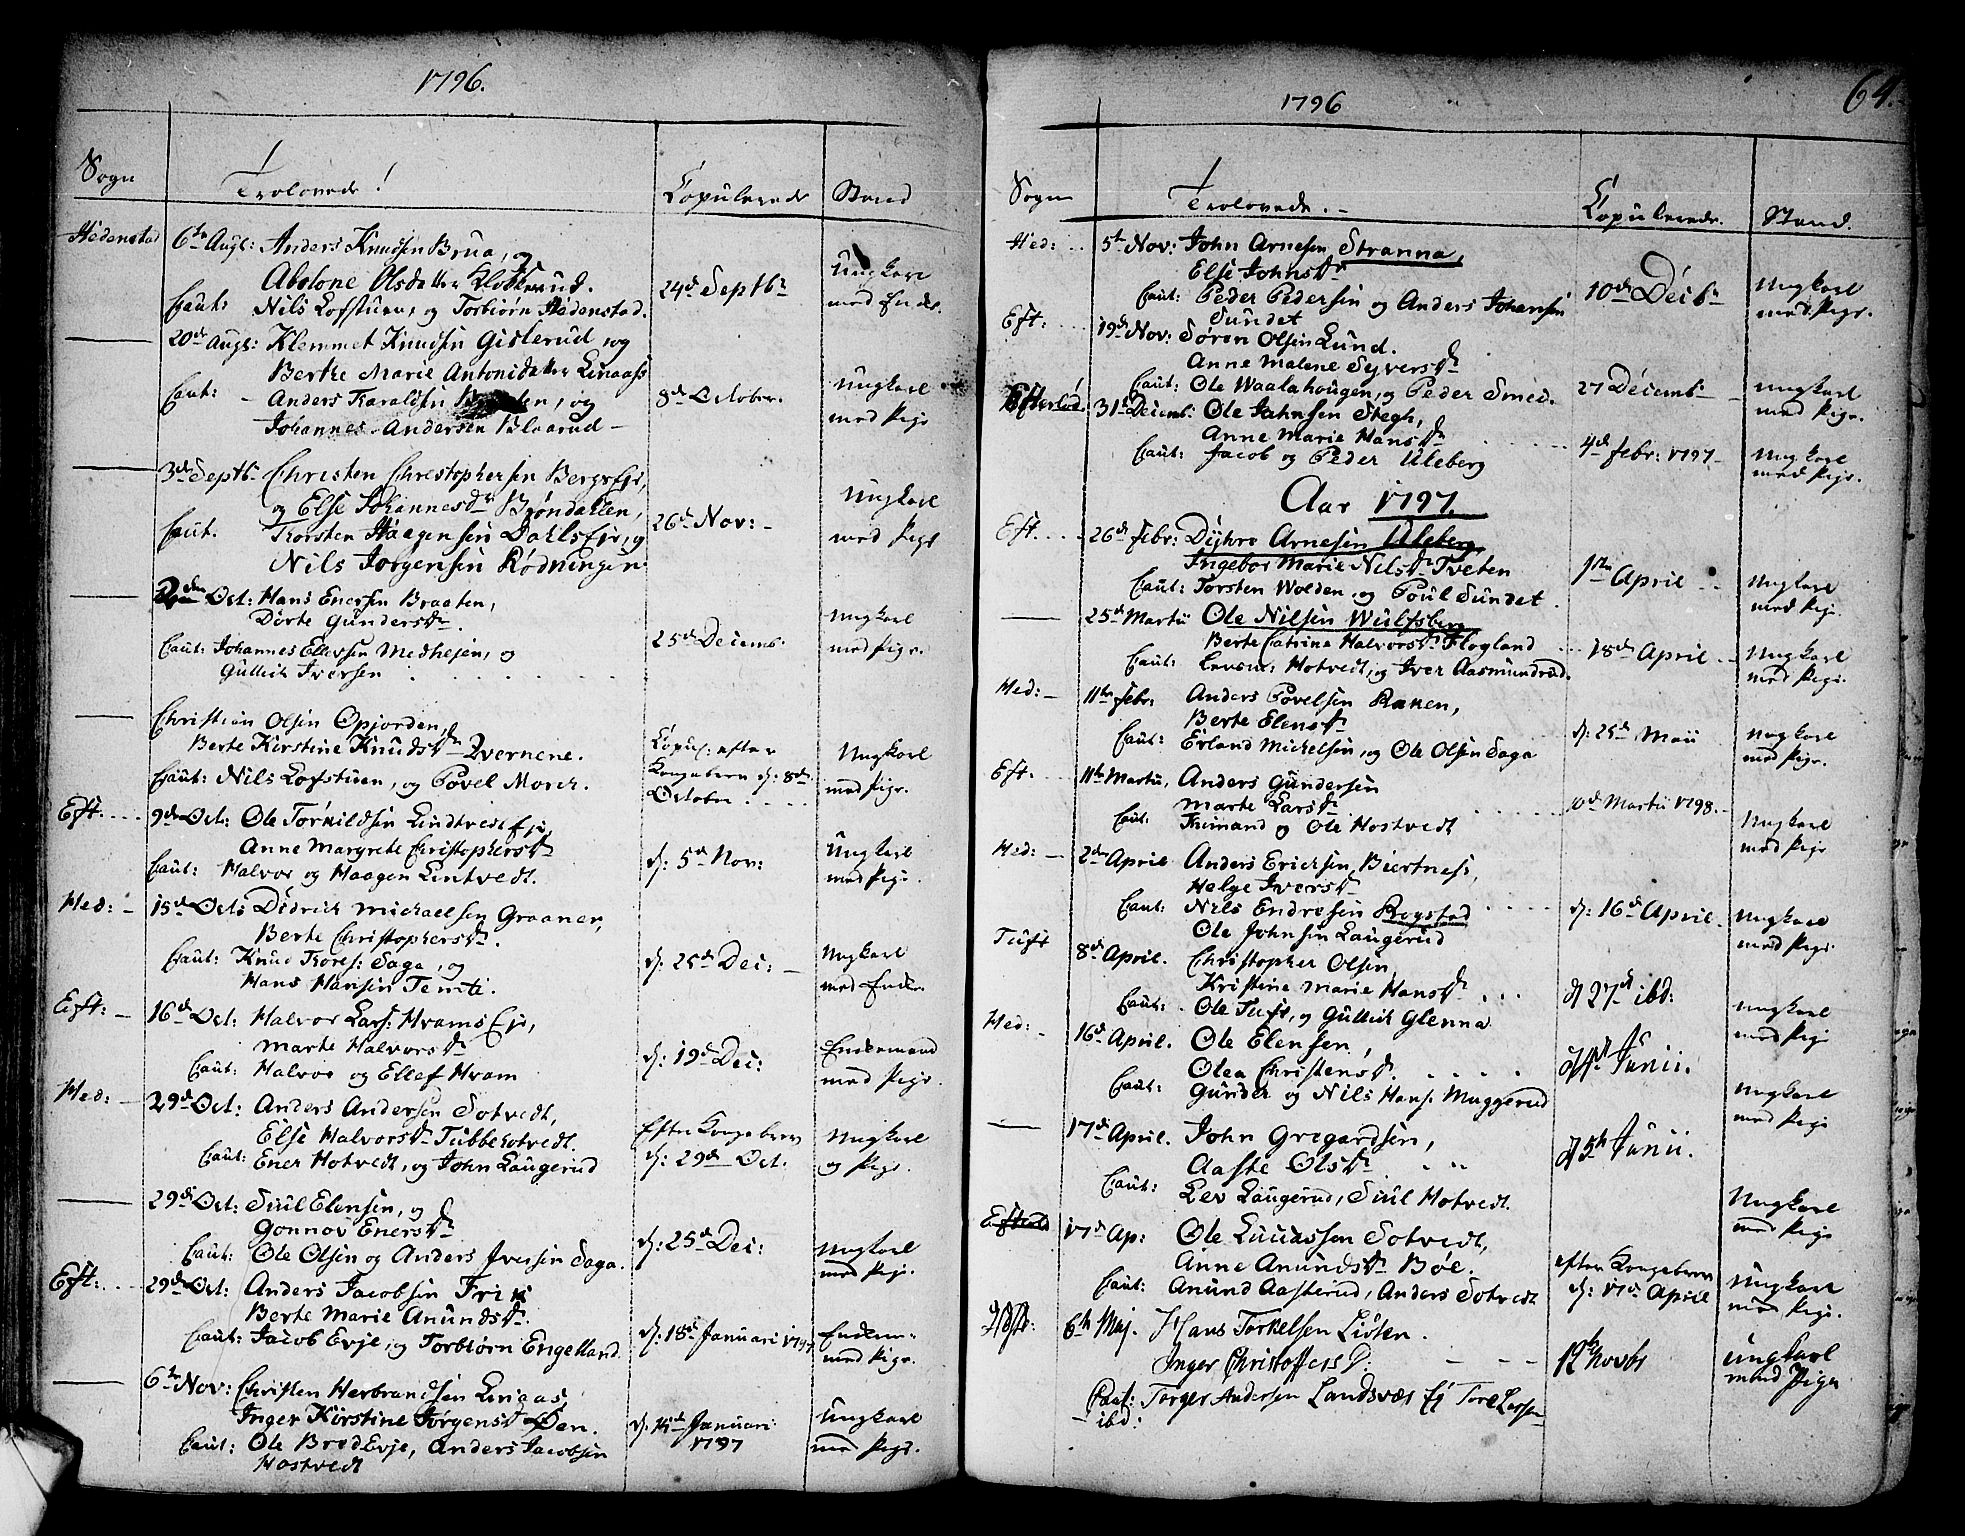 1796.
Sogn Trolovede! Copulerede Stand
Hedenstad 6te Augs: Anders Knudsen Brua, og
Abolone Olsdatter Klokkerud. 24de Septbr Ungkarl
Caut: Nils Lofstuen, og Torbiørn Hedenstad. med Enke.
20de Augs: Klemmet Knudsen Gislerud, og
Berthe Marie Antonidatter Linaass Ungkarl
Caut: Anders Haralsen Braaten, og 8de October. med Pige
Johannes Andersen Blaarud
3de Septb Christen Christophersen BergsEje,
og Else Johannesdr Brøndalen, 26de Nov: Ungkarl
Caut. Torsten Haagensen DahlsEje, og med Pige
Nils Jørgensen Rødningen
2den Oct: Hans Enersen Braaten,
Dorte Gundersdr. 25de Decemb: Ungkarl
Caut: Johannes Ellevsen Medhejen, og med Pige.
Gullich Iversen
Christian Olsen Opjorden,
Berte Kirstine Knudsdr Qvernene. Copul: efter Ungkarl
Caut: Nils Lofstuen, og Povel Moren. Kongebrev d: 8de October med Pige.
Eft. 9de Oct: Ole Torkildsen Lindtvedt Eje,
Anne Margrete Christophersdr d: 5te Nov: Ungkarl
Caut: Halvor og Haagen Lintvedt. med Pige.
Hed: 15de Octb Didrich Michaelsen Graaner,
Berte Christophersdr. Ungkarl
Caut: Knud Tores: Saga, og d: 25de Dec: med Enke
Hans Hansen Temte.
Eft: 16de Oct: Halvor Lars: HvamsEje,
Marte Halvorsdr d: 19de Dec: Enkemand
Caut: Halvor og Ellef Hvam med Pige.
Hed: 29de Oct: Anders Andersen Sotvedt,
Else Halvorsdr Tubbehotvedt. Efter Kongebrev Ungkarl
Caut: Ener Hotvedt, og John Laugerud d: 29de Oct. og Pige.
29de Oct: Siul Elensen, og
Gonnov Enersdr d: 25de Dec: Ungkarl
Caut: Ole Olsen og Anders Iversen Saga. med Pige.
Eft: 29de Oct: Anders Jacobsen Friis
Berte Marie Anundsdr. d: 18de Januari 1797 Enkem
Caut: Jacob Evje, og Torbiørn Engelland. med Pige.
6te Nov: Christen Herbrandsen Linaas,
Inger Kirstine Jørgensdr Øen. d: 14de Januari 1797 Ungkarl
Caut: Ole Bred Evje, Anders Jacobsen med Pige.
Hostvedt
1796 64.
Sogn Trolovede. Copulerede. Stand.
Hed: 5te Nov: John Arnesen Stranna,
Else Johnsdr 10de Decbr Ungkarl
Caut: Peder Pedersen og Anders Johansen med Pige.
Sundet
Eft: 19de Nov: Søren Olsen Lund.
Anne Malene Syversdr 27 Decemb Ungkarl
Caut: Ole Waalahougen, og Peder Smed. med Pige.
Efterlød. 31te Decemb: Ole Jahnsen Stegh,
Anne Marie Hansdr 4de febr: 1797 Ungkarl
Caut: Jacob og Peder Uleberg med Pige
Aar 1797.
Eft. 26de febr: Dijhre Arnesen Uleberg,
Ingebor Marie Nilsdr Tveten 1te April Ungkarl
Caut: Torsten Wolden, og Poul Sundet. med Pige
25de Martii Ole Nilsen Wulfsberg
Berte Catrine Halvorsdr Flogland 18de April Ungkarl
Caut: Hotvedt, og Iver Aasmundrud. med Pige.
Hed: 11te febr: Anders Povelsen Ranen,
Berte Elensdr d: 25de Maii Ungkarl
Caut: Erland Mickelsen, og Ole Olsen Saga med Pige.
Eft: 11te Martii, Anders Gundersen
Marte Larsdr Martii 1798. Ungkarl
Caut: Trimand og Ole Hostvedt med Pige
Hed: 2den April Anders Ericksen Biertness,
Helge Iversdr
Caut: Nils Endresen Rogstad d: 16de April. Ungkarl
Ole Johnsen Laugerud med Pige
Tuft 8de April. Christopher Olsen,
Kristine Marie Hansdr d 27de ibd: Ungkarl
Caut: Ole Tuft, og Gullich Glenna med Pige
Hed: 16de April. Ole Elensen,
Olea Christensdr. d 4de Junii. Ungkarl
Caut: Gunder og Nils Hans: Muggerud med Pige
17de April. John Gregardsen,
Aaste Olsdr d 5te Junii. Ungkarl
Caut: Lev Laugerud, Siul Hotvedt. med Pige
Efteløt 17de Ap: Ole Luuassen Sotvedt,
Anne Anundsdr Bøe. efter Kongebrev Ungkarl
Caut: Anund Aasterud, Anders Sotvedt d: 17de April med Pige.
Hdst: 6te Maj. Hans Torkelsen Listen.
Inger ChristoffersD: 12te Novbr ungkarl
Caut: Torger Andersen Landsvær Ej Tore Larsen med Pige
ibd: